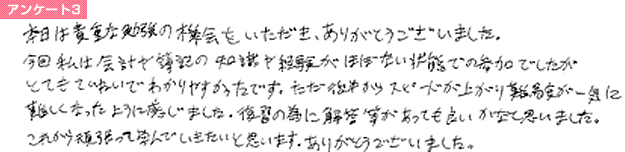 アンケート3
本日は貴重な勉強の機会をいただき、ありがとうございました。
今回私は会計や簿記の知識や経験がほぼない状態での参加でしたが
とてもていねいでわかりやすかったです。ただ後半からスピードが上がり難易度が一気に
難しくなったように感じました。復習の為に解答等があっても良いかなと思いました。
これから頑張って学んでいきたいと思います。ありがとうございました。